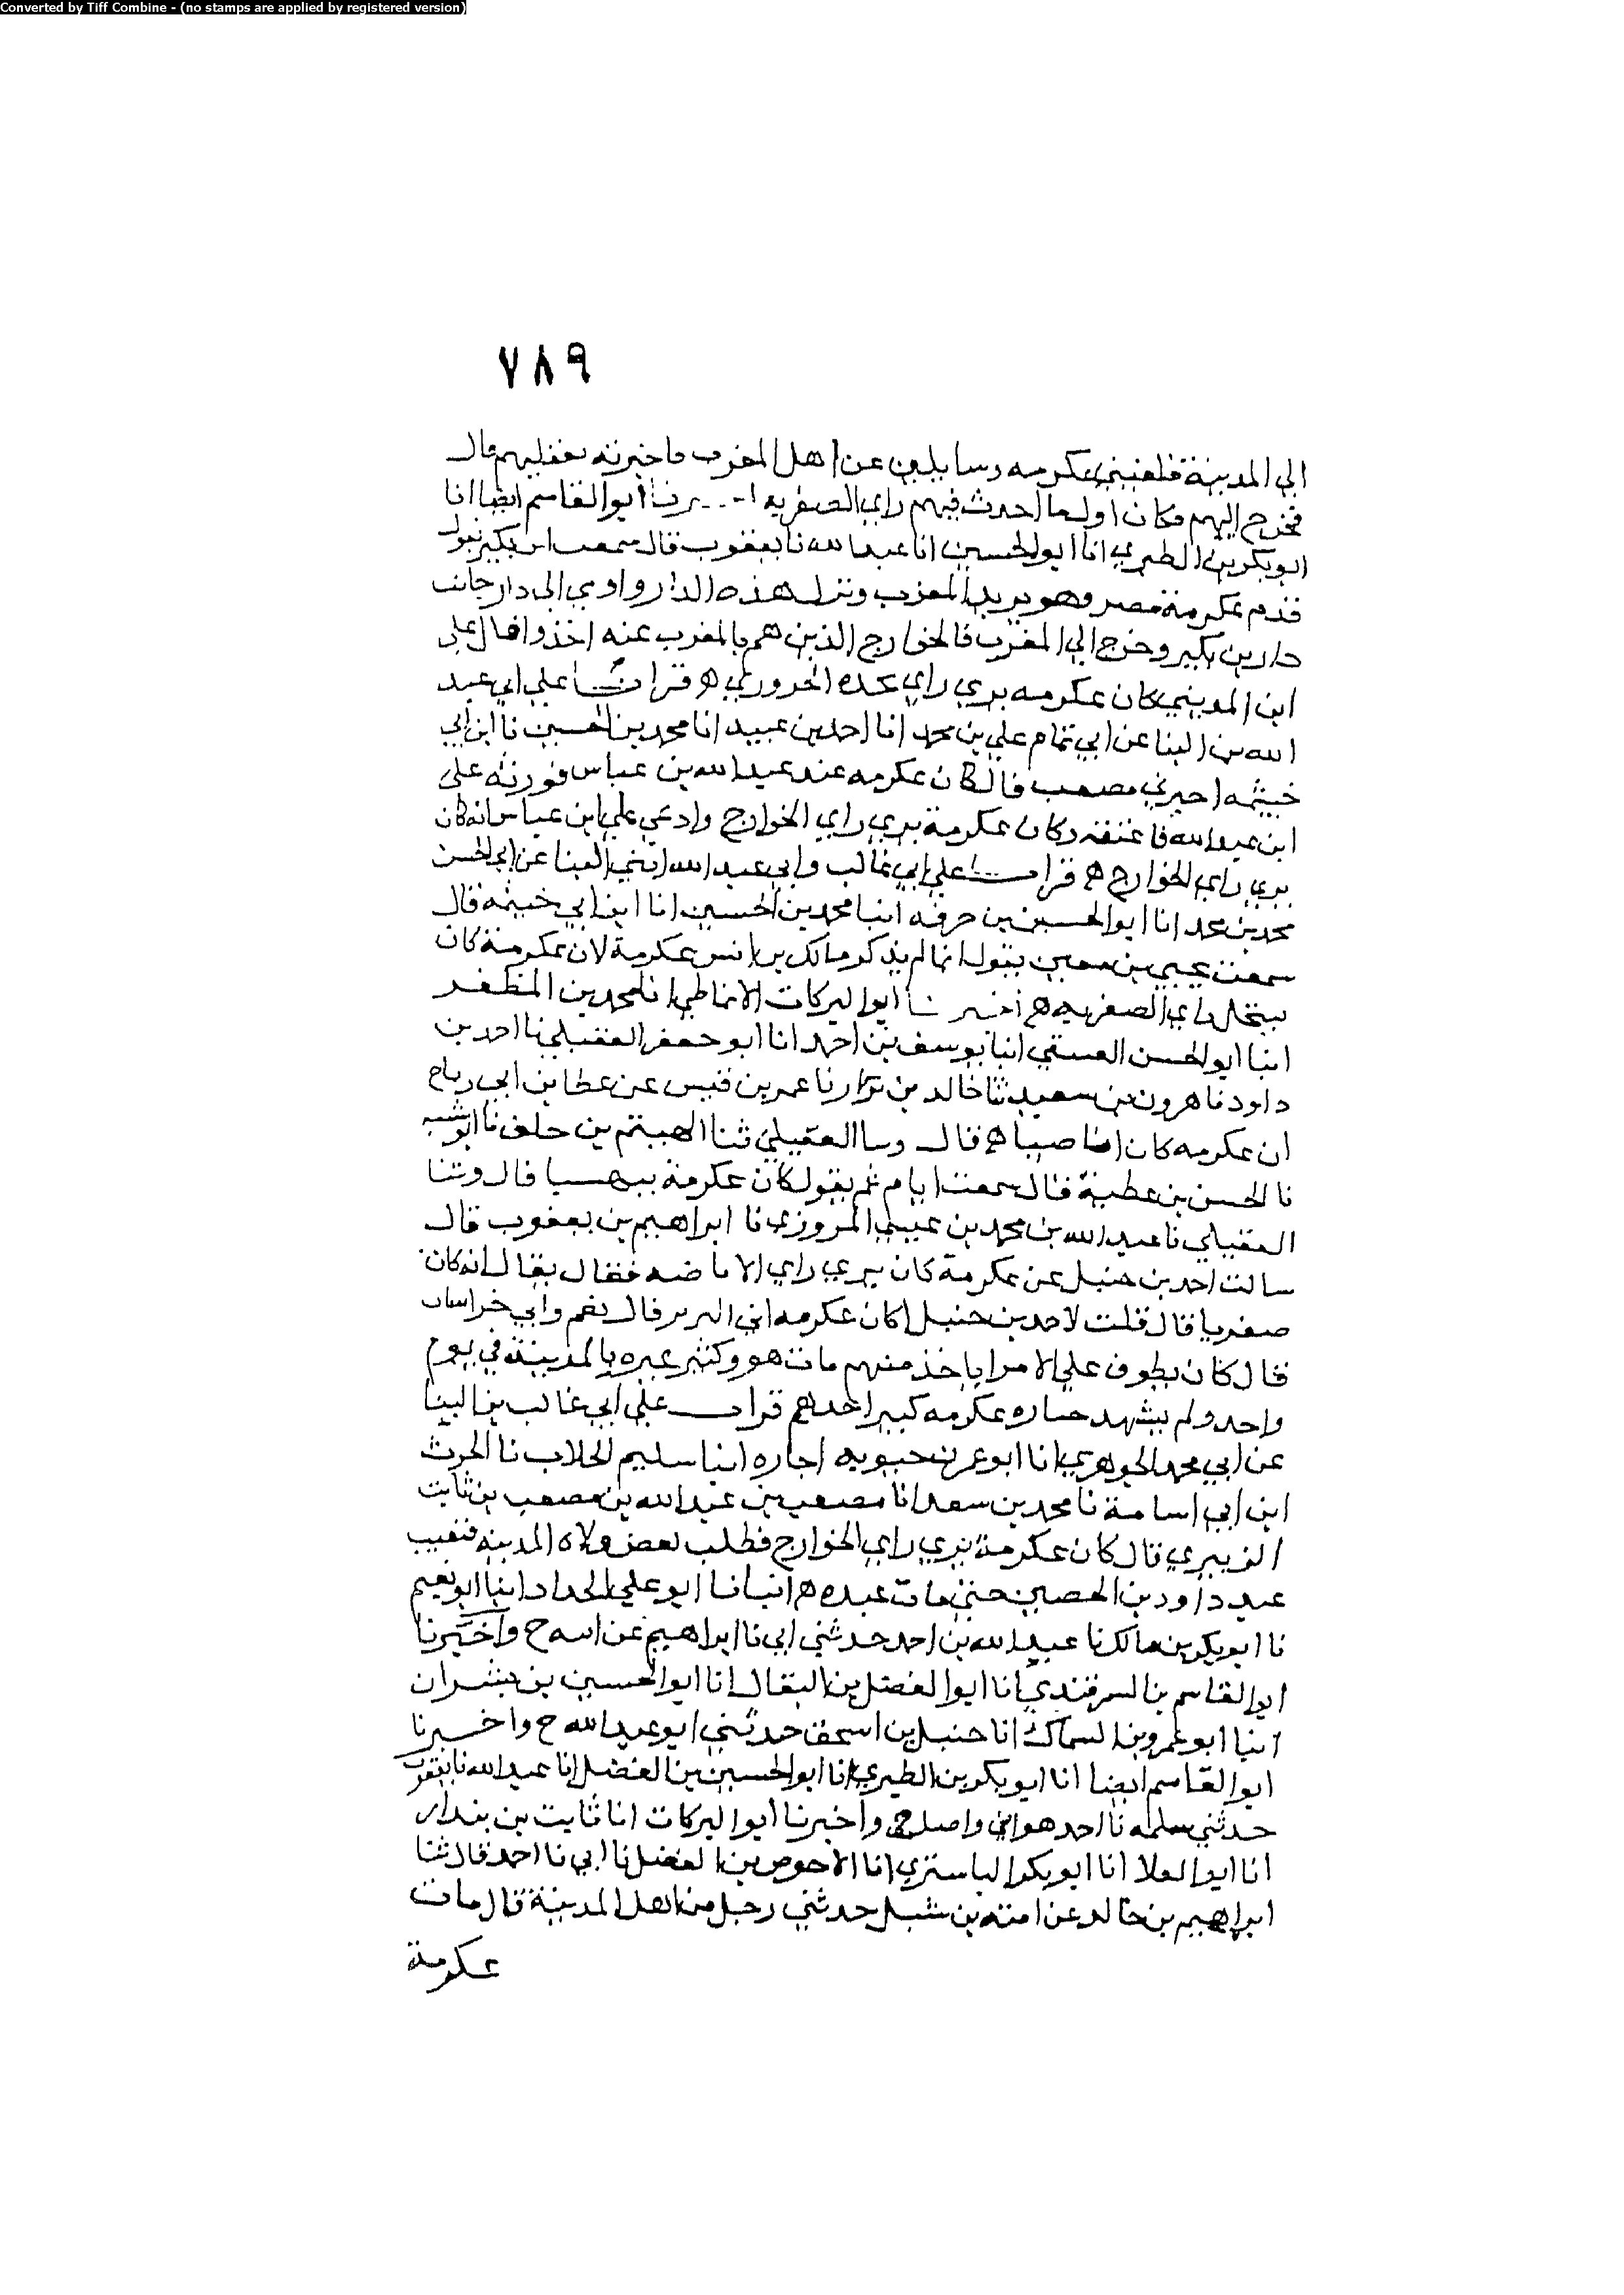 Converted by Tiff Combine - (no stamps are applied by registered version)
٧٨٩
الي المدينة فلقيني عكرمه وسايلني عن اهل المغرب فاخبرته بغفلتهم قال
فخرج اليهم فكان اول ما احدث فيهم راي الصفريه ابو القاسم ايضا انا
ابو بكر بن الطبري انا ابو الحسين انا عبد الله نا يعقوب قال سمعت ابن بكير يقول
قدم عكرمة مصر وهو يريد المغرب ونزل هذه الدار واومي الى دار جانب
دار بن بكير وخرج الي المغرب فالخوارج الذين هم بالمغرب عنه اخذوا قال علي
ابن المديني كان عكرمه يري راي نجده الحروري ه قرات علي ابي عبد
الله بن البنا عن ابي تمام علي بن محمد انا احمد بن عبيد انا محمد بن الحسين نا ابن ابي
خيثمه اخبرني مصعب قال كان عكرمه عند عبد الله بن عباس فورثه علي
ابن عبد الله فاعتقه وكان عكرمة يري راي الخوارج وادعي علي ابن عباس انه كان
يري راي الخوارج ه قرات علي ابي غالب وابي عبد الله ابني البنا عن ابي الحسن
محمد بن محمد انا ابو الحسين بن حرفه ابنا محمد بن الحسين انا ابن ابي خيثمه قال
سمعت يحيي بن معين يقول انما لم يذكر مالك بن انس عكرمة لان عكرمة كان
ينتحل راي الصفريه ه اخبرنا ابو البركات الانماطي انا محمد بن المظفر
ابنا ابو الحسن العتيقي ابنا يوسف بن احمد انا ابو جعفر العقيلي نا احمد بن
داود نا هرون بن سعيد ثنا خالد بن نزار نا عمر بن قيس عن عطا بن ابي رباح
ان عكرمه كان اباضيا ه قال وسا العقيلي ثنا الهيثم بن خلف نا ابو شيبه
نا الحسن بن عطية قال سمعت ابا مريم يقول كان عكرمة بيهسيا قال وثنا
العقيلي نا عبد الله بن محمد بن عيسي المروزي نا ابراهيم بن يعقوب قال
سالت احمد بن حنبل عن عكرمة كان يري راي الاباضه فقال يقال انه كان
صفريا قال قلت لاحمد بن حنبل اكان عكرمه اتي البربر قال نعم واتي خراسان
قال كان يطوف علي الامرا ياخذ منهم مات هو وكثير عزه بالمدينة في يوم
واحد ولم يشهد جنازه عكرمه كبير احد ه قرات علي ابي غالب بن البنا
عن ابي محمد الجوهري انا ابو عمر بن حيويه اجازه ابنا سليم الجلاب نا الحرث
ابن ابي اسامة نا محمد بن سعد انا مصعب بن عبد الله بن مصعب بن ثابت
الزبيري قال كان عكرمة يري راي الخوارج فطلبه بعض ولاه المدينه فتغيب
عند داود بن الحصين حتي مات عنده ه انبانا ابو علي الحداد ابنا ابو نعيم
نا ابو بكر بن مالك نا عبد الله بن احمد حدثني ابي نا ابراهيم عن اميه ح واخبرنا
ابو القاسم بن السمرقندي انا ابو الفضل بن البقال انا ابو الحسين بن بشران
ابنا ابو عمرو بن السماك انا حنبل بن اسحق حدثني ابو عبد الله ح واخبرنا
ابو القاسم ايضا انا ابو بكر بن الطبري انا ابو الحسين بن الفضل انا عبد الله نا يعقوب
حدثني سلمه نا احمد هواني واصل ح واخبرنا ابو البركات انا ثابت بن بندار
انا ابو العلا انا ابو بكر البابسيري انا الاحوص بن الفضل نا ابي نا احمد قال ثنا
ابراهيم بن خالد عن اميه بن شبل حدثني رجل من اهل المدينة قال مات
عكرمة